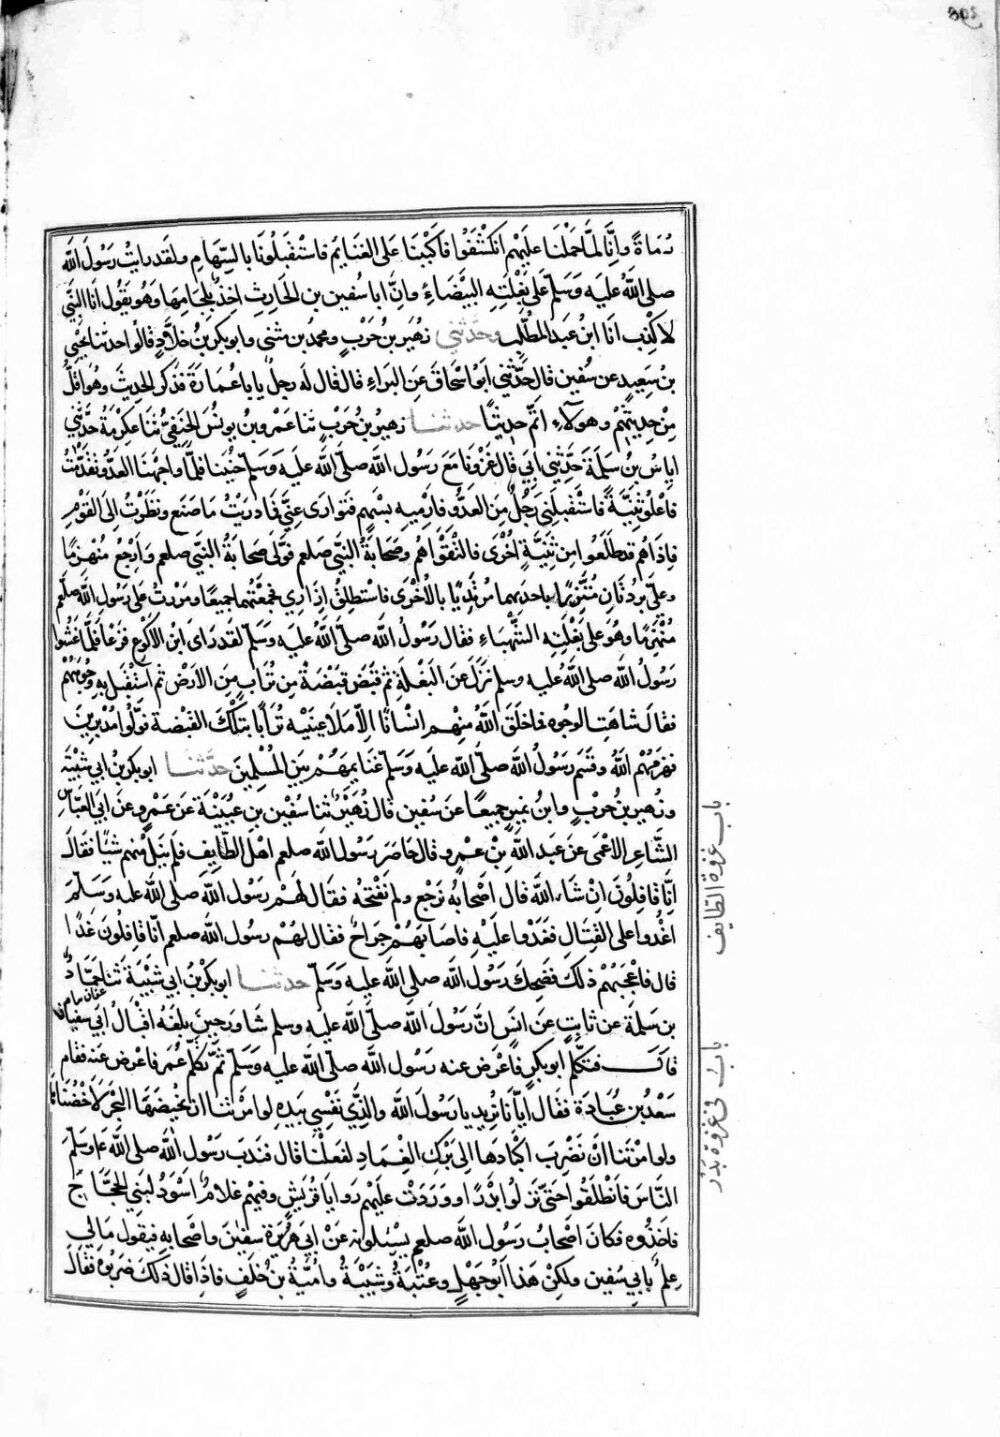 305
رُمَاةً وانّا لمّا حَمَلنا عليهم انكَشَفُوا فاكبَبْنَا عَلَى الغَنايم فاستقبلُونَا بالسِّهَامِ ولقد رايتُ رسولَ الله
صلى الله عليه وسَلّم عَلى بَغْلَتِهِ البَيْضَاءِ وانّ ابا سُفين بن الحارِثِ اخِذٌ بلِجَامِهَا وهو يَقُول أنا النّبي
لا كذِب انَا ابنُ عبد المطّلِب وحَدّثني زهَيرُ بن حَرْبٍ ومحمدُ بن مثنى وابو بكر بنُ خَلّادٍ قالوا حدثنا يَحْيَى
بنُ سَعِيدٍ عن سُفين قال حدّثني ابُو اسْحَاق عَنِ البَراءِ قال قال لَهُ رجلٌ يا باعُمَارَةَ فذكَر الحديثَ وهُوَ اقَلُّ
مِنْ حدِيثِهُمْ وهولاءِ اتَمّ حدِيثًا حدثنا زهيرُ بن حَرْبٍ ثنا عَمرو بن يُونُسَ الحنَفيُّ ثنا عِكرمَةُ حدّثني
اياسُ بنُ سَلمَةَ حدّثني ابِي قالَ غزَونَا مَعَ رسُول الله صلّى الله عليه وسَلّم حُنينا فلمّا واجَهنا العدوَّ تقدّمْتُ
فاعلُو ثنِيّةً فاستَقبلني رجُلٌ مِنَ العدوّ فارْمِيهِ بسَهْمٍ فتَوارى عنّي فما دريتُ ما صَنَع ونظرْتُ الى القَوْمِ
فاذا هُم قد طَلَعُوا مِن ثنِيّةٍ اُخْرَى فالتَقَوْا هُمْ وصَحَابَةُ النبيّ صلعم فوَلّى صَحابةُ النبيّ صلعم وارْجِعُ مُنْهزِمًا
وعليّ بُردَتانِ مُتّزِرًا باحدَيهما مُرتَدِيًا بالاُخْرَى فاستَطلَقَ اِزاري فجَمَعْتُهما جميعًا ومَرَرْتُ على رسُول الله صلعم
مُنْهَزِمًا وهُوَ على بَغْلتِهِ الشّهْبَاءِ فقال رسُولُ الله صلّى الله عليه وسلّم لقد رَاى ابن الاكوَعِ فزَعًا فلمّا غَشُوا
رَسُولَ الله صلى الله عليه وسلم نزَلَ عَن البَغْلَةِ ثم قبَضَ قَبْضَةً مِن تُرَابٍ مِنَ الارْض ثم استَقْبَلَ بهِ وجُوهَهُمْ
فقالَ شاهَتِ الوجوه فما خلَقَ اللهُ منهم انسَانًا الا ملأ عينَيْه تُرَابًا بتلكَ القَبْضةِ فوَلّوا مُدْبِرِين
فهزمَهُمْ اللهُ وقسَم رسُولُ الله صلّى الله عليه وسَلّم غنَايمَهُمْ بَين المسْلِمِين حدّثنا ابو بكر بنُ ابي شَيْبَة
وزهيرُ بن حَرْبٍ وابنُ نُميرٍ جميعًا عَن سُفين قال زُهَيْرٌ ثنا سفين بن عُيَيْنَة عَن عَمْرٍو عن ابي العَبّاسِ
الشّاعِر الاعْمَى عن عَبد الله بْنِ عَمرو قال حاصَر رَسُولُ الله صلعم اهلَ الطّايِفِ فلم ينَلْ منهم شيًا فقال
انّا قافِلُونَ اِنْ شاء اللهُ قال اصْحَابُه نَرجِع ولم نَفْتحْهُ فقالَ لهُمْ رسُول الله صلى الله عليه وسَلّم
اغْدُوا على القِتالِ فغَدوْا عليْهِ فاصَابَهُمْ جِراحٌ فقال لهُمْ رسُولُ الله صلعم انّا قافِلُونَ غدًا
قال فاعْجَبَهُمْ ذلكَ فضَحِكَ رَسُولُ الله صلى الله عليه وسَلّم حدثنا ابو بكر بنُ ابي شَيْبَةَ ثنا عفّان نا حمّادُ
بن سَلَمَةَ عن ثابِتٍ عن انَسٍ انّ رسُولَ الله صلّى الله عليه وسلم شاورَ حِينَ بلَغَهُ اقبالُ ابي سفيان
قالَ فتكلّم ابو بكرٍ فاعْرَض عنه رسُولُ الله صلى الله عليه وسَلّم ثمّ تكلّم عُمَر فاعْرَض عَنهُ فقام
سَعْدُ بن عُبَادَة فقال ايّانا تُرِيد يا رسُولَ الله والّذِي نَفْسِي بيَدِهِ لو امَرْتَنا ان نُخِيضَهَا البحْرَ لاخَضْنَاهَا
ولو امَرْتَنا اَنْ نَضْرِبَ اكْبادَها اِلى بَرْكِ الغِمَادِ لفَعَلْنا قال فندَبَ رسُولُ الله صلى الله عم وسلّم
النّاسَ فانطَلَقُوا حتى نزَلوا بدْرًا ووَرَدَتْ عليهم رَوَايا قريشٍ وفيهم غلامٌ اسْوَدُ لبَني الحَجّاجِ
فاخَذُوه فكانَ اصْحابُ رسُول الله صلعم يسئلونه عَنْ ابي سفين واصْحابه فيقول مَالي
عِلمٌ بابي سُفين ولكِنْ هَذا ابُو جَهْلٍ وعُتْبَةُ وشَيْبَةُ واُمَيّةُ بن خلَفٍ فاذَا قال ذلكَ ضرَبُوهُ فقالَ
باب غزوة الطايف
باب في غزوة بَدْر